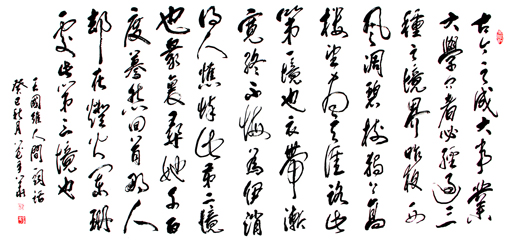 古今之成大事業
大學問者必經過三
種之境界昨夜西
風凋碧樹獨上高
樓望盡天涯路此
第一境也衣帶漸
寬終不悔為伊消
得人憔悴此第二境
也眾裏尋她千百
度驀然回首那人
却在燈火闌珊
處此第三境也
王國維人間詞話
癸巳秋月